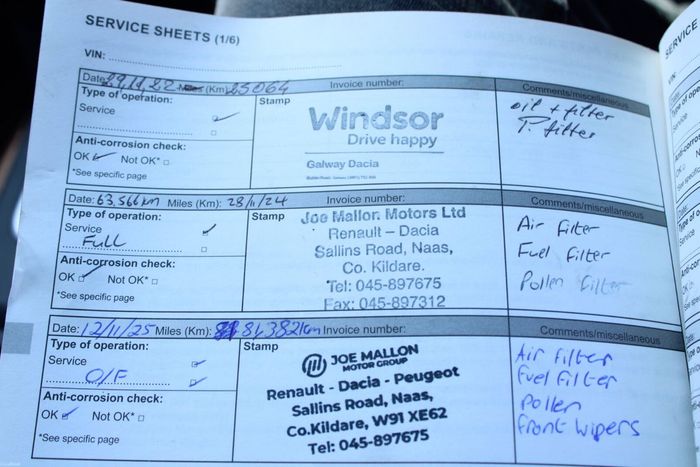 SERVICE SHEETS (1/6)
VIN:
Date: 29/11/22 Miles (Km) 25064 Invoice number: Comments/miscellaneous
Type of operation: Stamp
Service
Windsor
Drive happy
Galway Dacia
oil + filter
P. filter
Anti-corrosion check:
OK Not OK*
*See specific page
Date: 63,566km Miles (Km): 28/11/24 Invoice number: Comments/miscellaneous
Type of operation: Stamp
Service
FULL
Joe Mallon Motors Ltd
Renault – Dacia
Sallins Road, Naas,
Co. Kildare.
Tel: 045-897675
Fax: 045-897312
Air Filter
Fuel Filter
Pollen Filter
Anti-corrosion check:
OK Not OK*
*See specific page
Date: 12/11/25 Miles (Km): 81,382km Invoice number: Comments/miscellaneous
Type of operation: Stamp
Service
O/F
JOE MALLON
MOTOR GROUP
Renault - Dacia - Peugeot
Sallins Road, Naas,
Co.Kildare, W91 XE62
Tel: 045-897675
Air Filter
Fuel Filter
Pollen
Front Wipers
Anti-corrosion check:
OK Not OK*
*See specific page
SERVICE